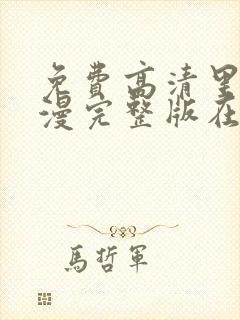 免费高清里
漫完整版在
馬哲軍